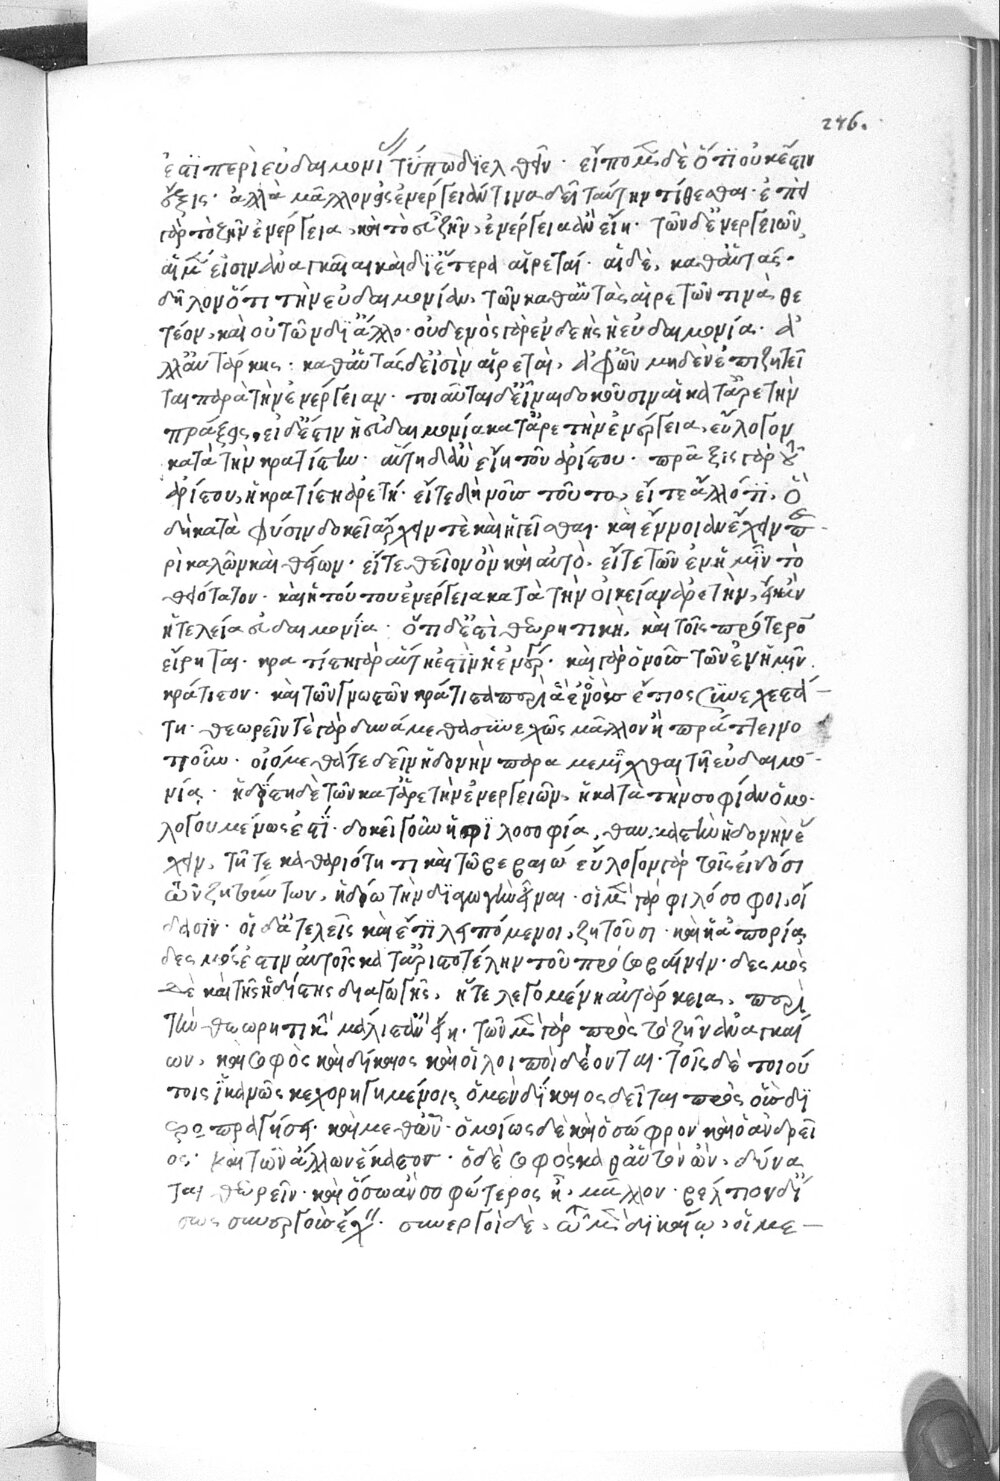 246.
ἐστὶ περὶ εὐδαιμονί τύπω διελθεῖν· εἴπομεν δὲ ὅτι οὐκ ἔστιν
ἕξις· ἀλλὰ μᾶλλον εἰς ἐνέργειάν τινα δεῖ ταύτην τίθεσθαι· ἐπεὶ
γὰρ τὸ ζῆν ἐνέργεια, καὶ τὸ εὖ ζῆν, ἐνέργεια ἂν εἴη· τῶν δ' ἐνεργειῶν
αἱ μέν εἰσιν ἀναγκαῖαι καὶ δι' ἕτερα αἱρεταί· αἱ δὲ, καθ' αὑτάς·
δῆλον ὅτι τὴν εὐδαιμονίαν, τῶν καθ' αὑτὰς αἱρετῶν τινὰ θε
τέον, καὶ οὐ τῶν δι' ἄλλο· οὐδενὸς γὰρ ἐνδεὴς ἡ εὐδαιμονία· ἀ
λλ' αὐτάρκης· καθ' αὑτὰς δ' εἰσὶν αἱρεταὶ, ἀφ' ὧν μηδὲν ἐπιζητεῖ
ται παρὰ τὴν ἐνέργειαν· τοιαῦται δ' εἶναι δοκοῦσιν αἱ κατ' ἀρετὴν
πράξεις, εἰ δ' ἔστιν ἡ εὐδαιμονία κατ' ἀρετὴν ἐνέργεια, εὔλογον
κατὰ τὴν κρατίστην· αὕτη δ' ἂν εἴη τοῦ ἀρίστου· πρᾶξις γὰρ τοῦ
ἀρίστου, ἡ κρατίστη ἀρετή· εἴτε δὴ νοῦς τοῦτο, εἴτε ἄλλό τι, ὃ
δὴ κατὰ φύσιν δοκεῖ ἄρχειν τὲ καὶ ἡγεῖσθαι· καὶ ἔννοιαν ἔχειν πε
ρὶ καλῶν καὶ θείων· εἴτε θεῖον ὂν καὶ αὐτὸ, εἴτε τῶν ἐν ἡμῖν τὸ
θειότατον· καὶ ἡ τούτου ἐνέργεια κατὰ τὴν οἰκείαν ἀρετὴν, εἴη ἂν
ἡ τελεία εὐδαιμονία· ὅτι δ' ἐστὶ θεωρητικὴ, καὶ τοῖς πρότερον
εἴρηται· κρατίστη γὰρ αὕτη ἐστὶν ἡ ἐνέργεια· καὶ γὰρ ὁ νοῦς τῶν ἐν ἡμῖν
κράτιστον· καὶ τῶν γνωστῶν κράτιστα περὶ ἃ ὁ νοῦς ἔτι συνεχεστά
τη· θεωρεῖν τὲ γὰρ δυνάμεθα συνεχῶς μᾶλλον ἢ πράττειν ὁ
τιοῦν· οἰόμεθά τε δεῖν ἡδονὴν παραμεμῖχθαι τῇ εὐδαιμο
νίᾳ· ἡδίστη δὲ τῶν κατ' ἀρετὴν ἐνεργειῶν, ἡ κατὰ τὴν σοφίαν ὁμο
λογουμένως ἐστί· δοκεῖ γοῦν ἡ φιλοσοφία, θαυμαστὴν ἡδονὴν ἔ
χειν, τῇ τε καθαριότητι καὶ τῷ βεβαίῳ εὔλογον γὰρ τοῖς εἰδόσι
τῶν ζητούντων, ἡδίω τὴν διαγωγὴν εἶναι· οἱ μὲν γὰρ φιλόσοφοι, οἴ
δασιν· οἱ δ' ἀτελεῖς καὶ ἔτι λειπόμενοι, ζητοῦσι· καὶ ἡ ἀπορία
δεσμός ἐστιν αὐτοῖς κατ' ἀριστοτέλην τοῦ πρόσω βαίνειν· δεσμὸς
δὲ καὶ τῆς ἡδίστης διαγωγῆς, ἥ τε λεγομένη αὐτάρκεια, περὶ
τὴν θεωρητικὴν μάλιστ' ἂν εἴη· τῶν μὲν γὰρ πρὸς τὸ ζῆν ἀναγκαί
ων, καὶ σοφὸς καὶ δίκαιος καὶ οἱ λοιποὶ δέονται· τοῖς δὲ τοιού
τοις ἱκανῶς κεχορηγημένοις ὁ μὲν δίκαιος δεῖται πρὸς οὓς δι
καιοπραγήσει· καὶ μεθ' ὧν· ὁμοίως δὲ καὶ ὁ σώφρον καὶ ὁ ἀνδρεῖ
ος· καὶ τῶν ἄλλων ἕκαστος· ὁ δὲ σοφὸς καθ' αὑτὸν ὢν, δύνα
ται θεωρεῖν· καὶ ὅσω ἂν σοφώτερος ᾖ, μᾶλλον· βέλτιον δ' ἴ
σως συνεργοὺς ἔχειν· συνεργοὶ δὲ, τῷ μὲν δικαίῳ, οἱ με